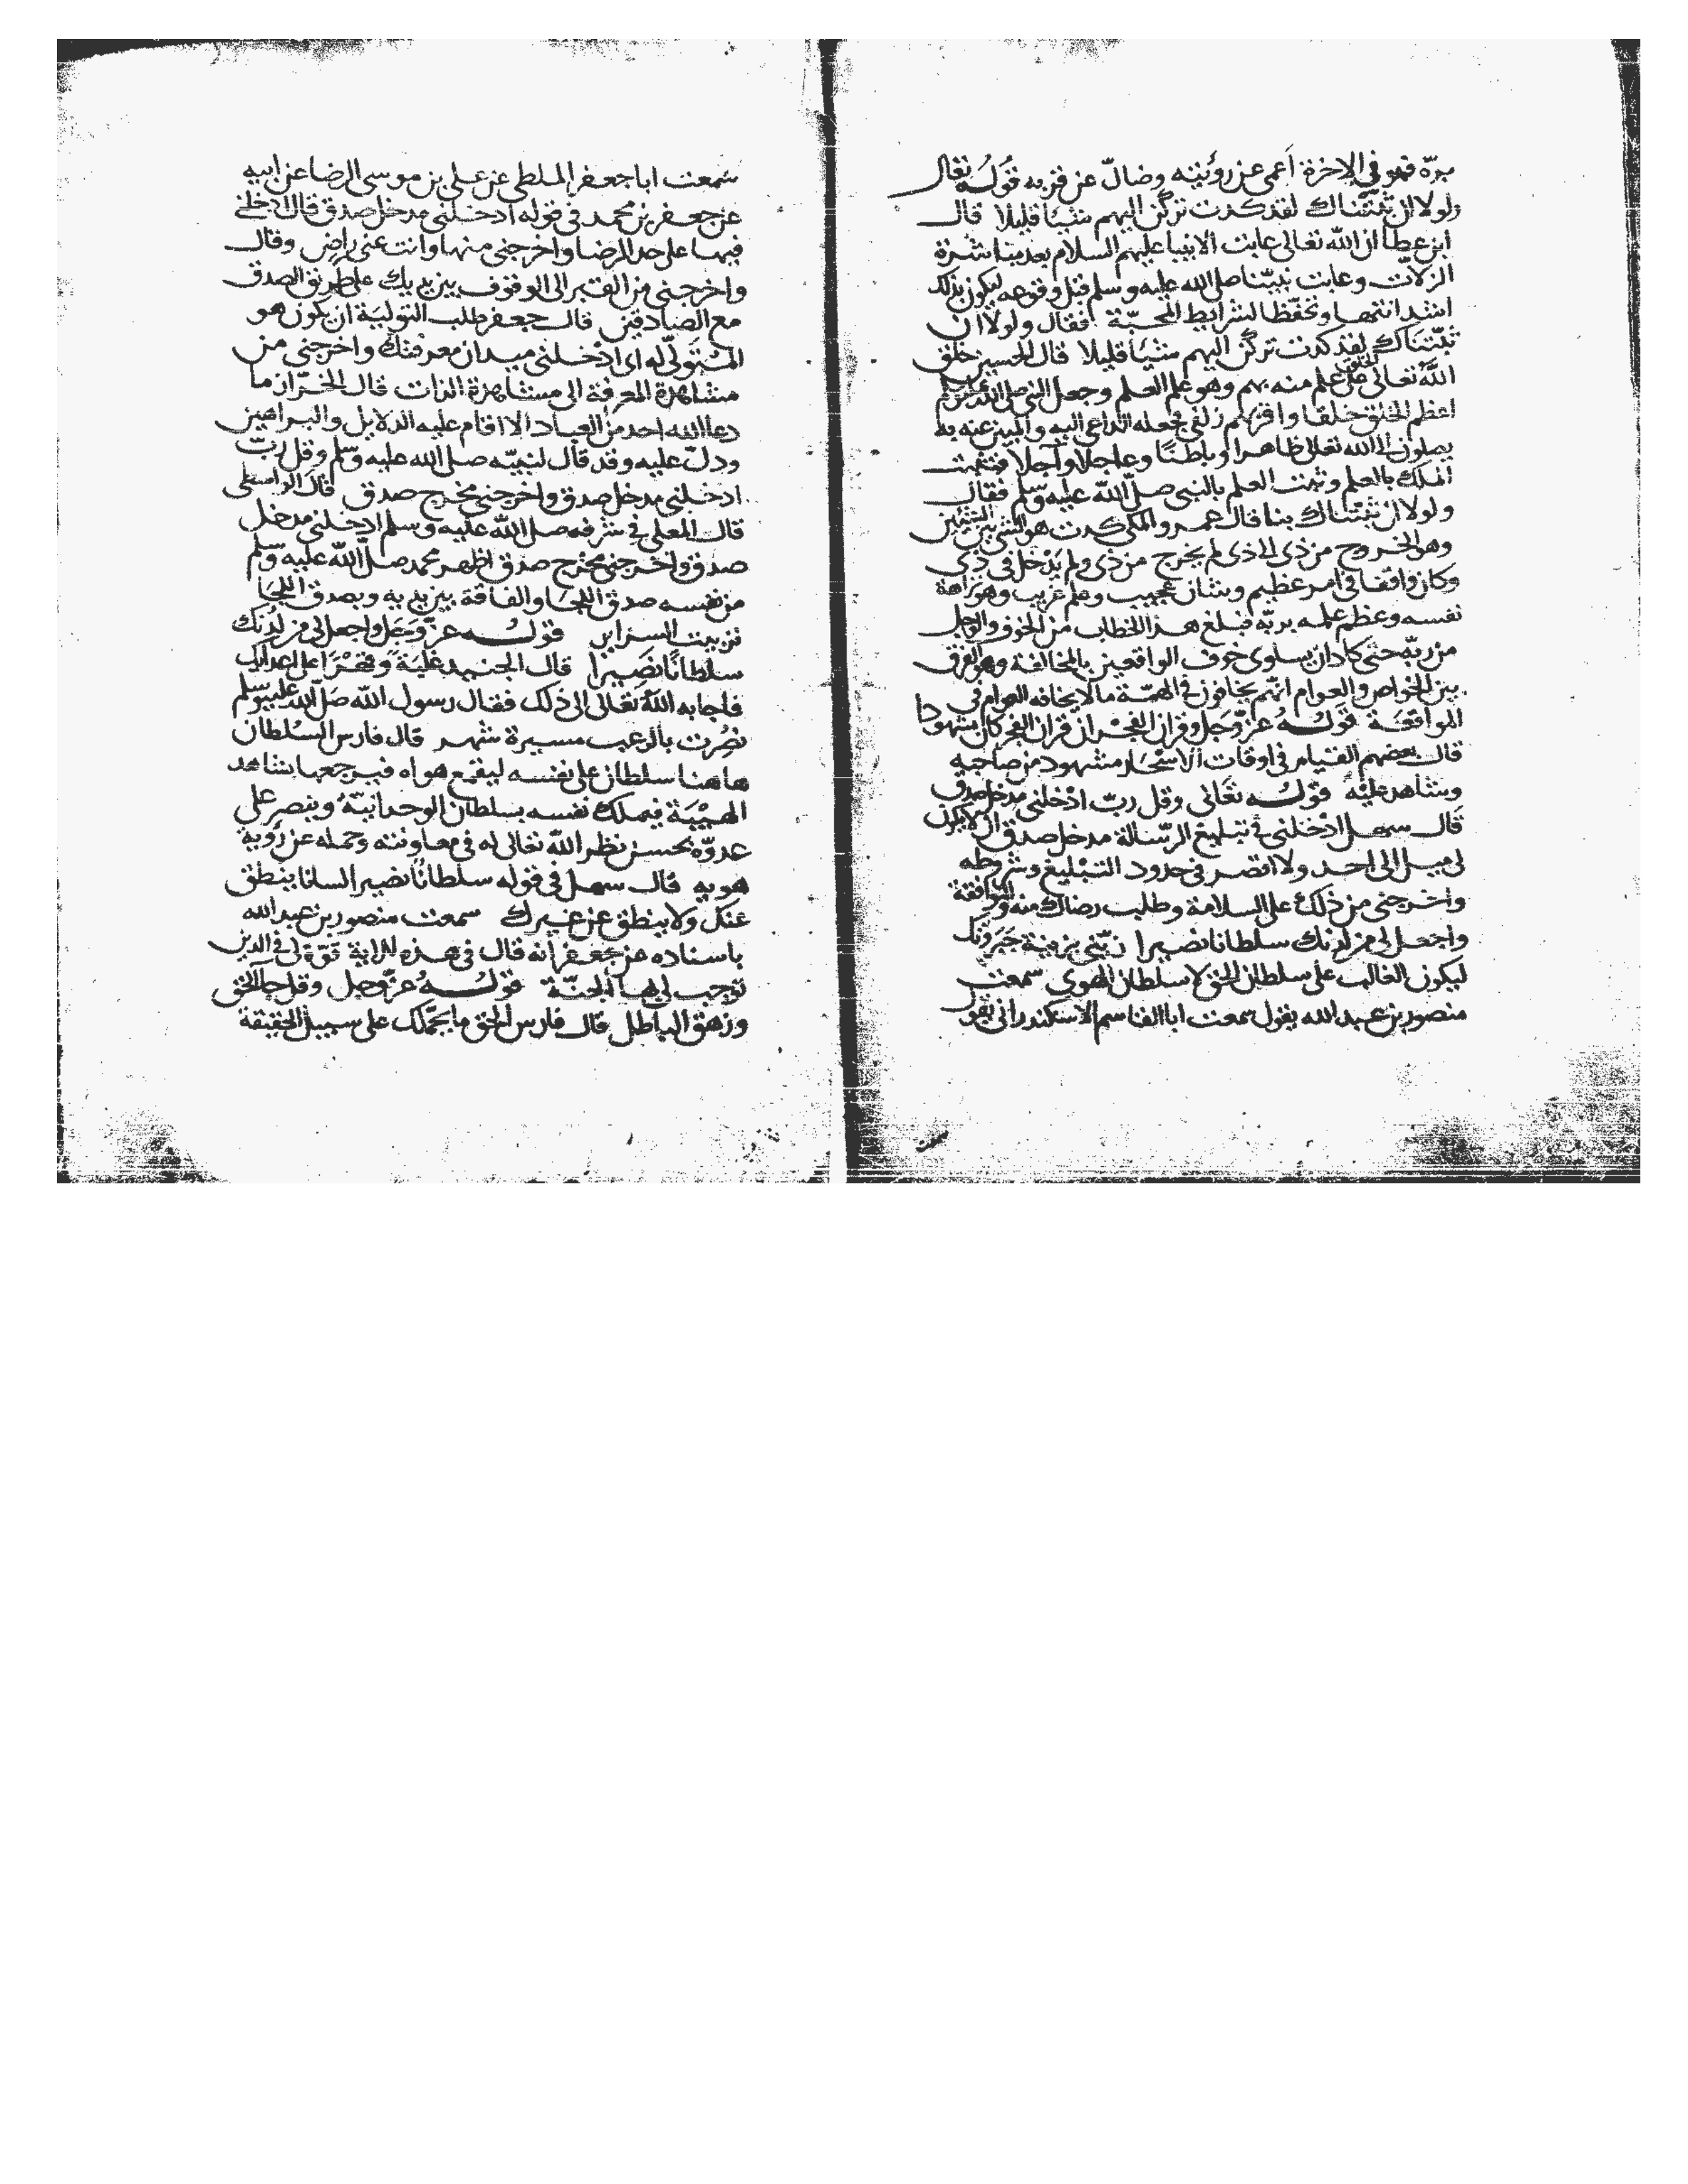 برّه فهو في الاخرة أعمى عن رؤيته وضالّ عن قربه قوله تعالى
ولولا ان ثبّتناك لقد كدت تركن اليهم شيئا قليلا قال
ابن عطا ان الله تعالى عاتب الانبيا عليهم السلام بعد مباشرة
الزلات وعاتب نبيّنا صلى الله عليه وسلم قبل وقوعه ليكون بذلك
اشد انتهاءً وتحفّظا لشرايط المحبّة فقال ولولا ان
ثبّتناك لقد كدت تركن اليهم شيئا قليلا قال الحسين خلق
الله تعالى الخلق على علم منه بهم وهو علم العلم وجعل النبي صلى الله عليه وسلم
اعظم الخلق خلقا واقربهم زلفى فجعله الداعي اليه والمبين عنه به
يصلون الى الله تعالى ظاهرا وباطنا وعاجلا وآجلا فثبّت
الملك بالعلم وثبت العلم بالنبي صلى الله عليه وسلم فقال
ولولا ان ثبّتناك بنا قال عمرو المكي كدت هو الشي بين الشيئين
وهو الخروج من ذي الى ذي لم يخرج من ذي ولم يدخل في ذي
وكان واقفا في امر عظيم وشان عجيب وعلم غريب وهو نزاهة
نفسه وعظم علمه بربّه فبلغ هذا الخطاب من الخوف والوجل
من ربّه حتى كاد ان يساوى خوف الواقعين بالمخالفة وهو الفرق
بين الخواص والعوام انهم يخافون في الهمّة ما لا يخافه العوام في
المواقعة قوله عزّ وجل وقران الفجر ان قران الفجر كان مشهودا
قال بعضهم القيام في اوقات الاسحار مشهود من صاحبه
وشاهد عليه قوله تعالى وقل ربّ ادخلني مدخل صدق
قال سهل ادخلني في تبليغ الرسالة مدخل صدق ان لا يكون
لي ميل الى احد ولا اقصر في حدود التبليغ وشروطه
واخرجني من ذلك على السلامة وطلب رضاك منه والموافقة
واجعل لي من لدنك سلطانا نصيرا زيّني بزينة جبروتك
ليكون الغالب على سلطان الحق لا سلطان الهوى سمعت
منصور بن عبد الله يقول سمعت ابا القاسم الاسكندراني يقول
سمعت ابا جعفر الملطي عن علي بن موسى الرضا عن ابيه
عن جعفر بن محمد في قوله ادخلني مدخل صدق قال ادخلني
فيها على حد الرضا واخرجني منها وانت عني راض وقال
واخرجني من القبر الى الوقوف بين يديك على طريق الصدق
مع الصادقين قال جعفر طلب التولية ان يكون هو
المتولّي له اى ادخلني ميدان معرفتك واخرجني من
مشاهدة المعرفة الى مشاهدة الذات قال الخرّاز ما
دعا الله احد من العباد الا اقام عليه الدلايل والبراهين
ودلّ عليه وقد قال لنبيّه صلى الله عليه وسلم وقل ربّ
ادخلني مدخل صدق واخرجني مخرج صدق قال الواسطي
قال المعلى في شرفه صلى الله عليه وسلم ادخلني مدخل
صدق واخرجني مخرج صدق اظهر محمد صلى الله عليه وسلم
من نفسه صدق اللجا والفاقة بين يديه وبصدق اللجا
تزينت السراير قوله عزّ وجل واجعل لي من لدنك
سلطانا نصيرا قال الجنيد غلبة وقهرا على اعدايك
فاجابه الله تعالى الى ذلك فقال رسول الله صلى الله عليه وسلم
نصرت بالرعب مسيرة شهر قال فارس السلطان
هاهنا سلطان على نفسه ليقمع هواه فيرجعها بشاهد
الهيبة فيملك نفسه بسلطان الوحدانيّة وينصر على
عدوّه بحسن نظر الله تعالى له في معاونته وحمله عن رؤية
هو به قال سهل في قوله سلطانا نصيرا لسانا ينطق
عنك ولا ينطق عن غيرك سمعت منصور بن عبد الله
باسناده عن جعفر انه قال في هذه الاية قوّة لي في الدين
توجب لي بها الجنّة قوله عزّ وجل وقل جا الحق
وزهق الباطل قال فارس الحق ما يحملك على سبيل الحقيقة